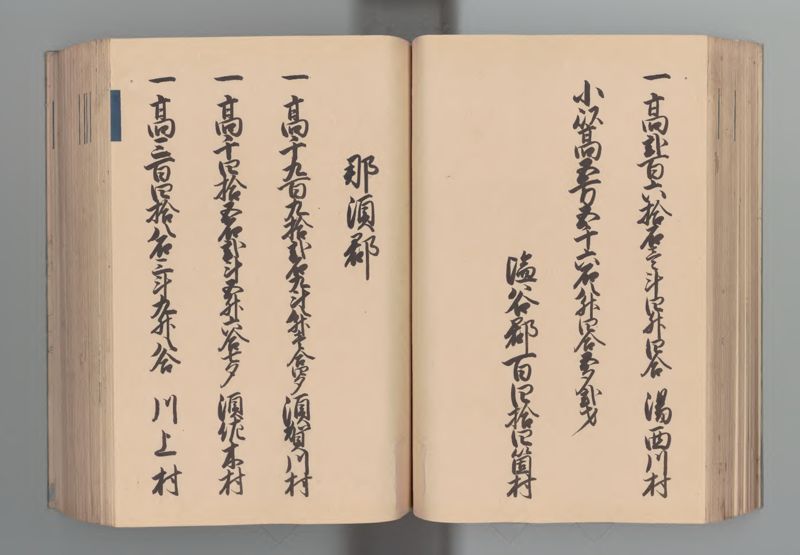 一 高弐百六拾石壱斗四升四合 湯西川村
小以高五万五千六石八升四合五夕弐才
塩谷郡百四拾四箇村
那須郡
一 高千九百九拾弐石九斗八升 須賀川村
一 高千四拾五石弐斗五升六合七夕 須佐木村
一 高三百四拾八石三斗九升八合 川上村